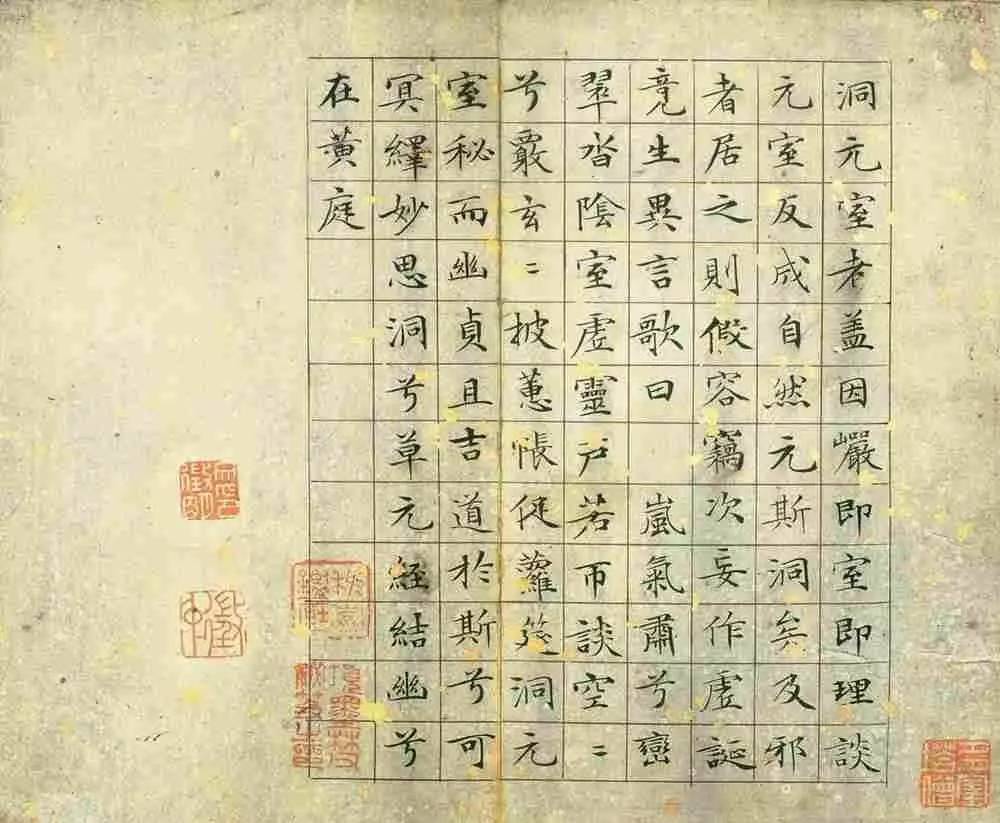 洞元室老盖因巖即室即理談
元室反成自然元斯洞矣及邪
者居之則假容竊次妄作虛誕
竟生異言歌曰 嵐氣肅兮巒
翠沓陰室虛靈戶若帀談空〻
兮覈玄〻披蕙帳促蘿筵洞元
室秘而幽貞且吉道於斯兮可
冥繹妙思洞兮草元經結幽兮
在黃庭